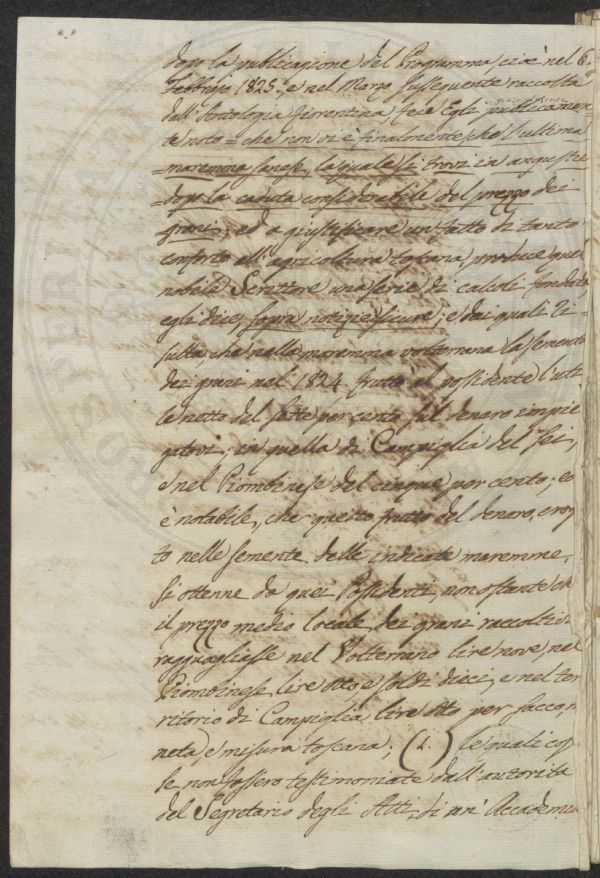 dopo la publicazione del Programma, cioè nel 6.
Febbrajo 1825. e nel Marzo susseguente raccolta
dall'Antologia fiorentina fece Egli publicamen-
te noto = che non vi è finalmente, che l'ultima
= maremma sanese, la quale si trovi in angustie
= dopo la caduta considerabile del prezzo dei
grani; ed a giustificare un fatto di tanto
conforto all'agricoltura toscana, produce quel
nobile Scrittore una serie di calcoli fondata,
egli dice, sopra notizie sicure; e dai quali ri-
sulta, che nella maremma volterrana la sementa
dei grani nel 1824. fruttò al possidente l'uti-
le netto del sette per cento sul denaro impie
gatovi; in quella di Campiglia del sei,
e nel Piombinese del cinque per cento; ed
è notabile, che questo frutto del denaro, eroga
to nelle semente delle indicate maremme,
si ottenne da quei Possidenti, non ostante ch
il prezzo medio locale dei grani raccolti si
ragguagliasse nel Volterrano lire nove, nel
Piombinese lire otto e soldi dieci, e nel ter
ritorio di Campiglia lire otto per sacco, mo
neta, e misura toscana; (1.) le quali co
se non fossero testimoniate dall'autorità
del Segretario degli Atti di un'Accademia